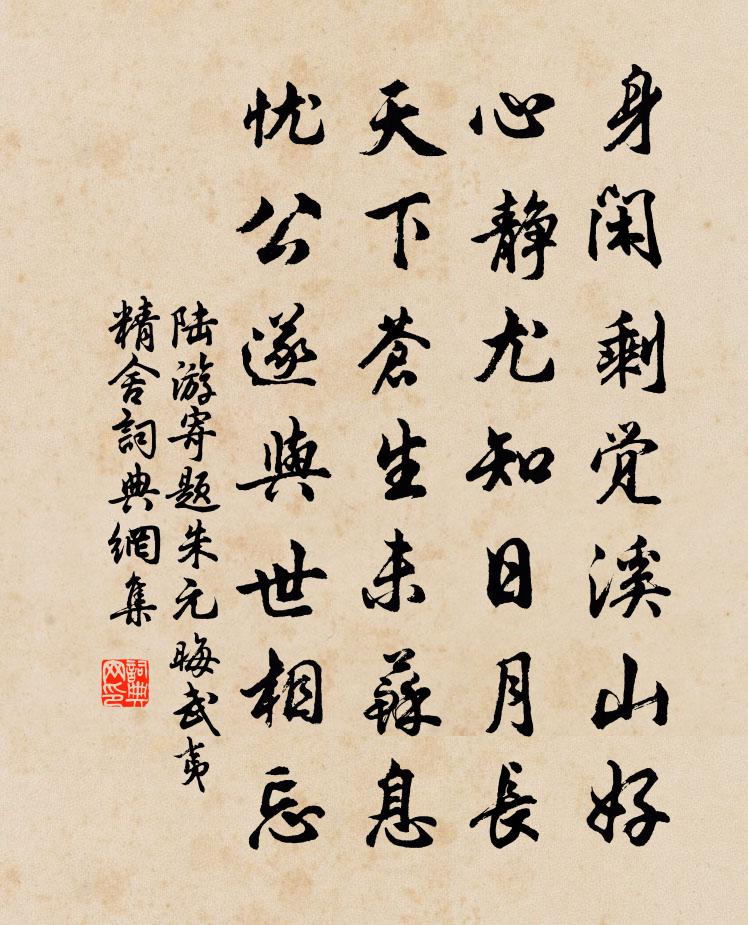 身闲剩觉溪山好
心静尤知日月長
天下蒼生未蘇息
忧公遂與世相忘
陆游寄题朱元晦武夷
精舍詞典網集
詞典
网印